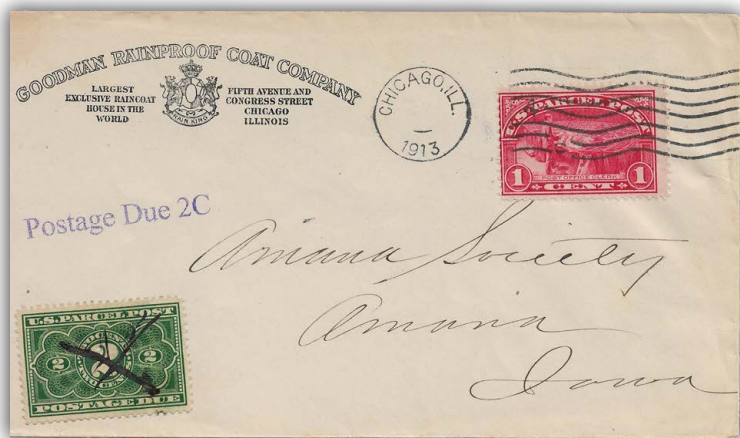 GOODMAN RAINPROOF COAT COMPANY
LARGEST
EXCLUSIVE RAINCOAT
HOUSE IN THE
WORLD
RAIN KING
FIFTH AVENUE AND
CONGRESS STREET
CHICAGO
ILLINOIS
CHICAGO, ILL.
1913
U.S. PARCEL POST
POST OFFICE CLERK
1 CENT 1
Postage Due 2C
Amana Society
Amana
Iowa
U.S. PARCEL POST
2 2 2
POSTAGE DUE